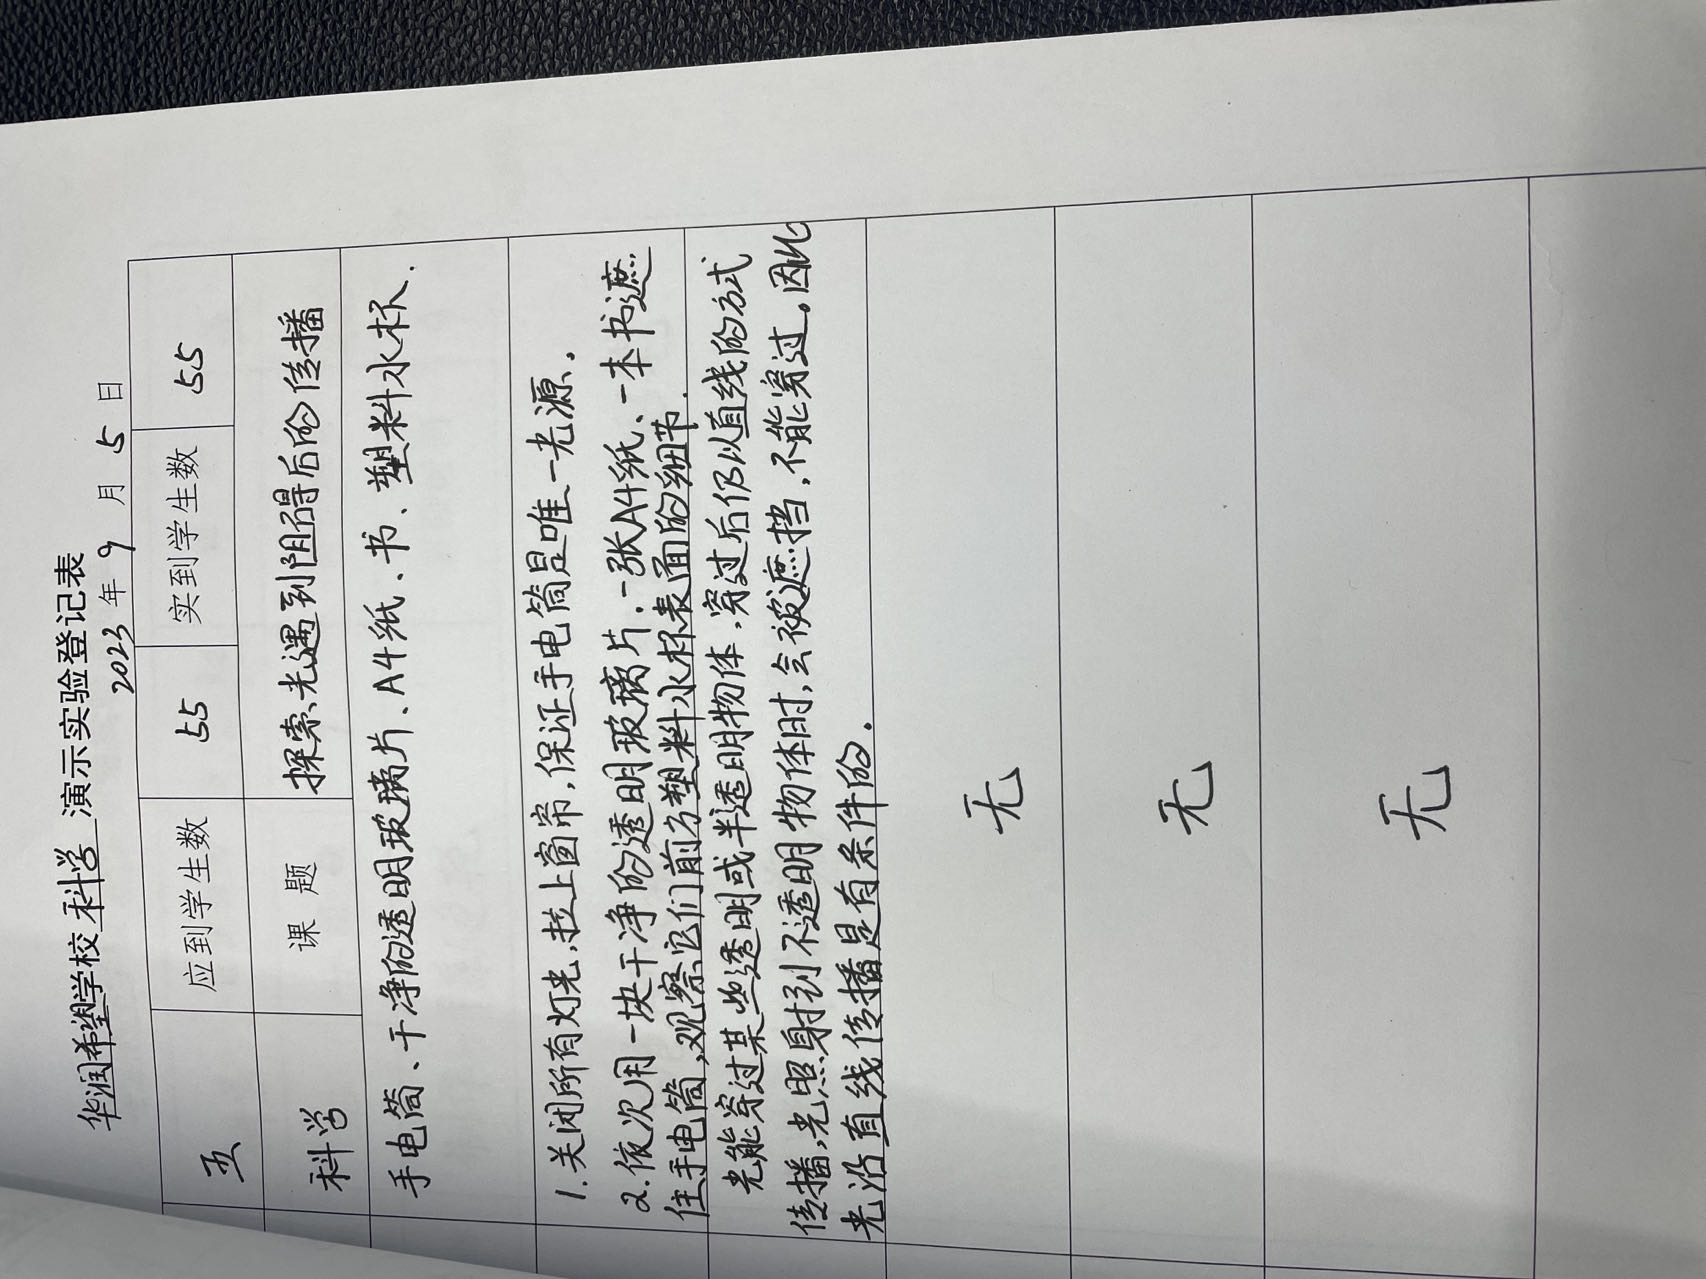 华润希望学校 科学 演示实验登记表
2023 年 9 月 5 日
五 应到学生数 55 实到学生数 55
科学 课 题 探索光遇到阻碍后的传播
手电筒、干净的透明玻璃片、A4纸、书、塑料水杯.
1.关闭所有灯光,拉上窗帘,保证手电筒是唯一光源.
2.依次用一块干净的透明玻璃片.一张A4纸、一本书遮
住手电筒,观察它们前方塑料水杯表面的细节.
光能穿过某些透明或半透明物体,穿过后仍以直线的方式
传播,光照射到不透明物体时,会被遮挡,不能穿过。因此
光沿直线传播是有条件的.
无
无
无